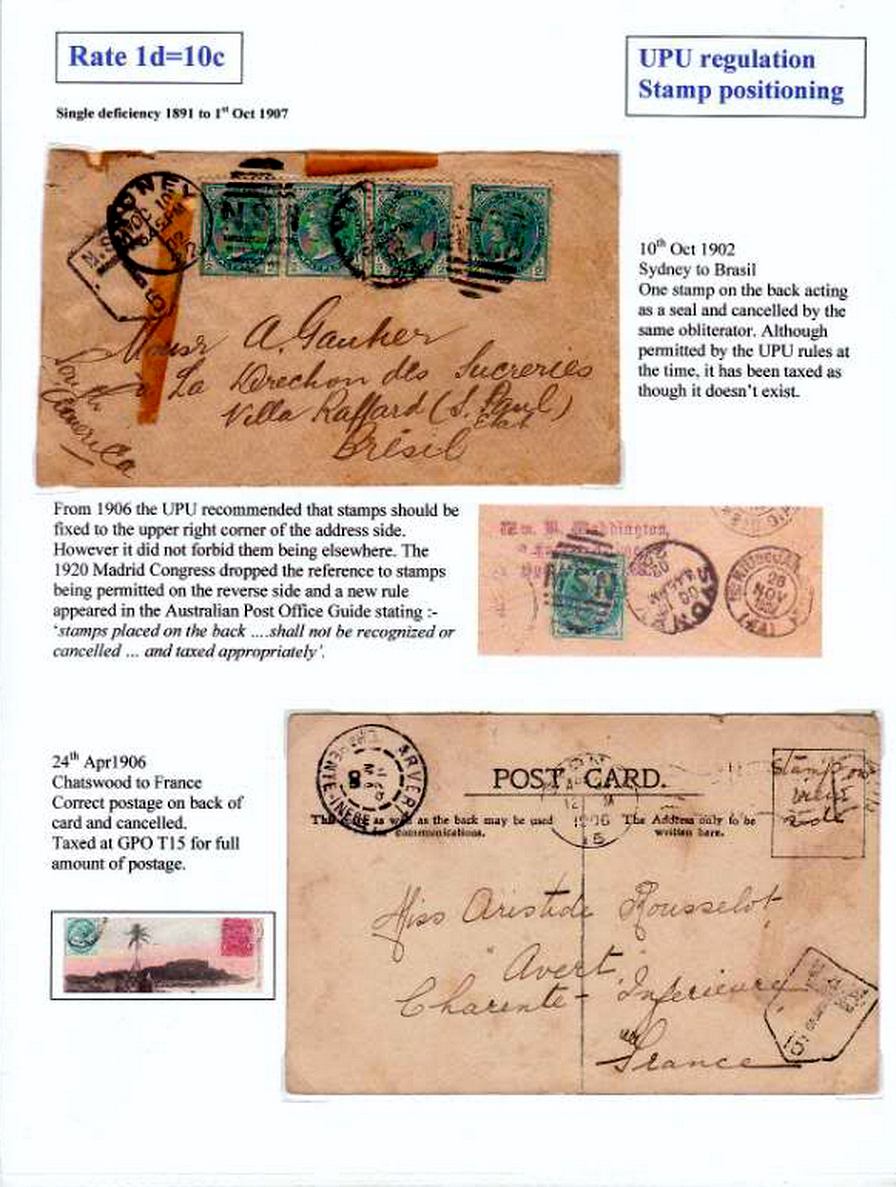 Rate 1d=10c
UPU regulation
Stamp positioning
Single deficiency 1891 to 1st Oct 1907
SYDNEY
OC 10
6 45 PM
02
N.S.W
5
Monsr A. Gauthier
à La Direction des Sucreries
Villa Raffard (S. Paul)
Etat
Brésil
South
America
10th Oct 1902
Sydney to Brasil
One stamp on the back acting
as a seal and cancelled by the
same obliterator. Although
permitted by the UPU rules at
the time, it has been taxed as
though it doesn't exist.
From 1906 the UPU recommended that stamps should be
fixed to the upper right corner of the address side.
However it did not forbid them being elsewhere. The
1920 Madrid Congress dropped the reference to stamps
being permitted on the reverse side and a new rule
appeared in the Australian Post Office Guide stating :-
'stamps placed on the back ….shall not be recognized or
cancelled … and taxed appropriately'.
SYDNEY
26
NOV
24th Apr1906
Chatswood to France
Correct postage on back of
card and cancelled.
Taxed at GPO T15 for full
amount of postage.
ARVERT
POST CARD.
This as well as the back may be used
for communications.
The Address only to be
written here.
12 M
1906
15
Stamp on
view
side
Miss Aristide Rousselot
Avert
Charente - Inferieure
France